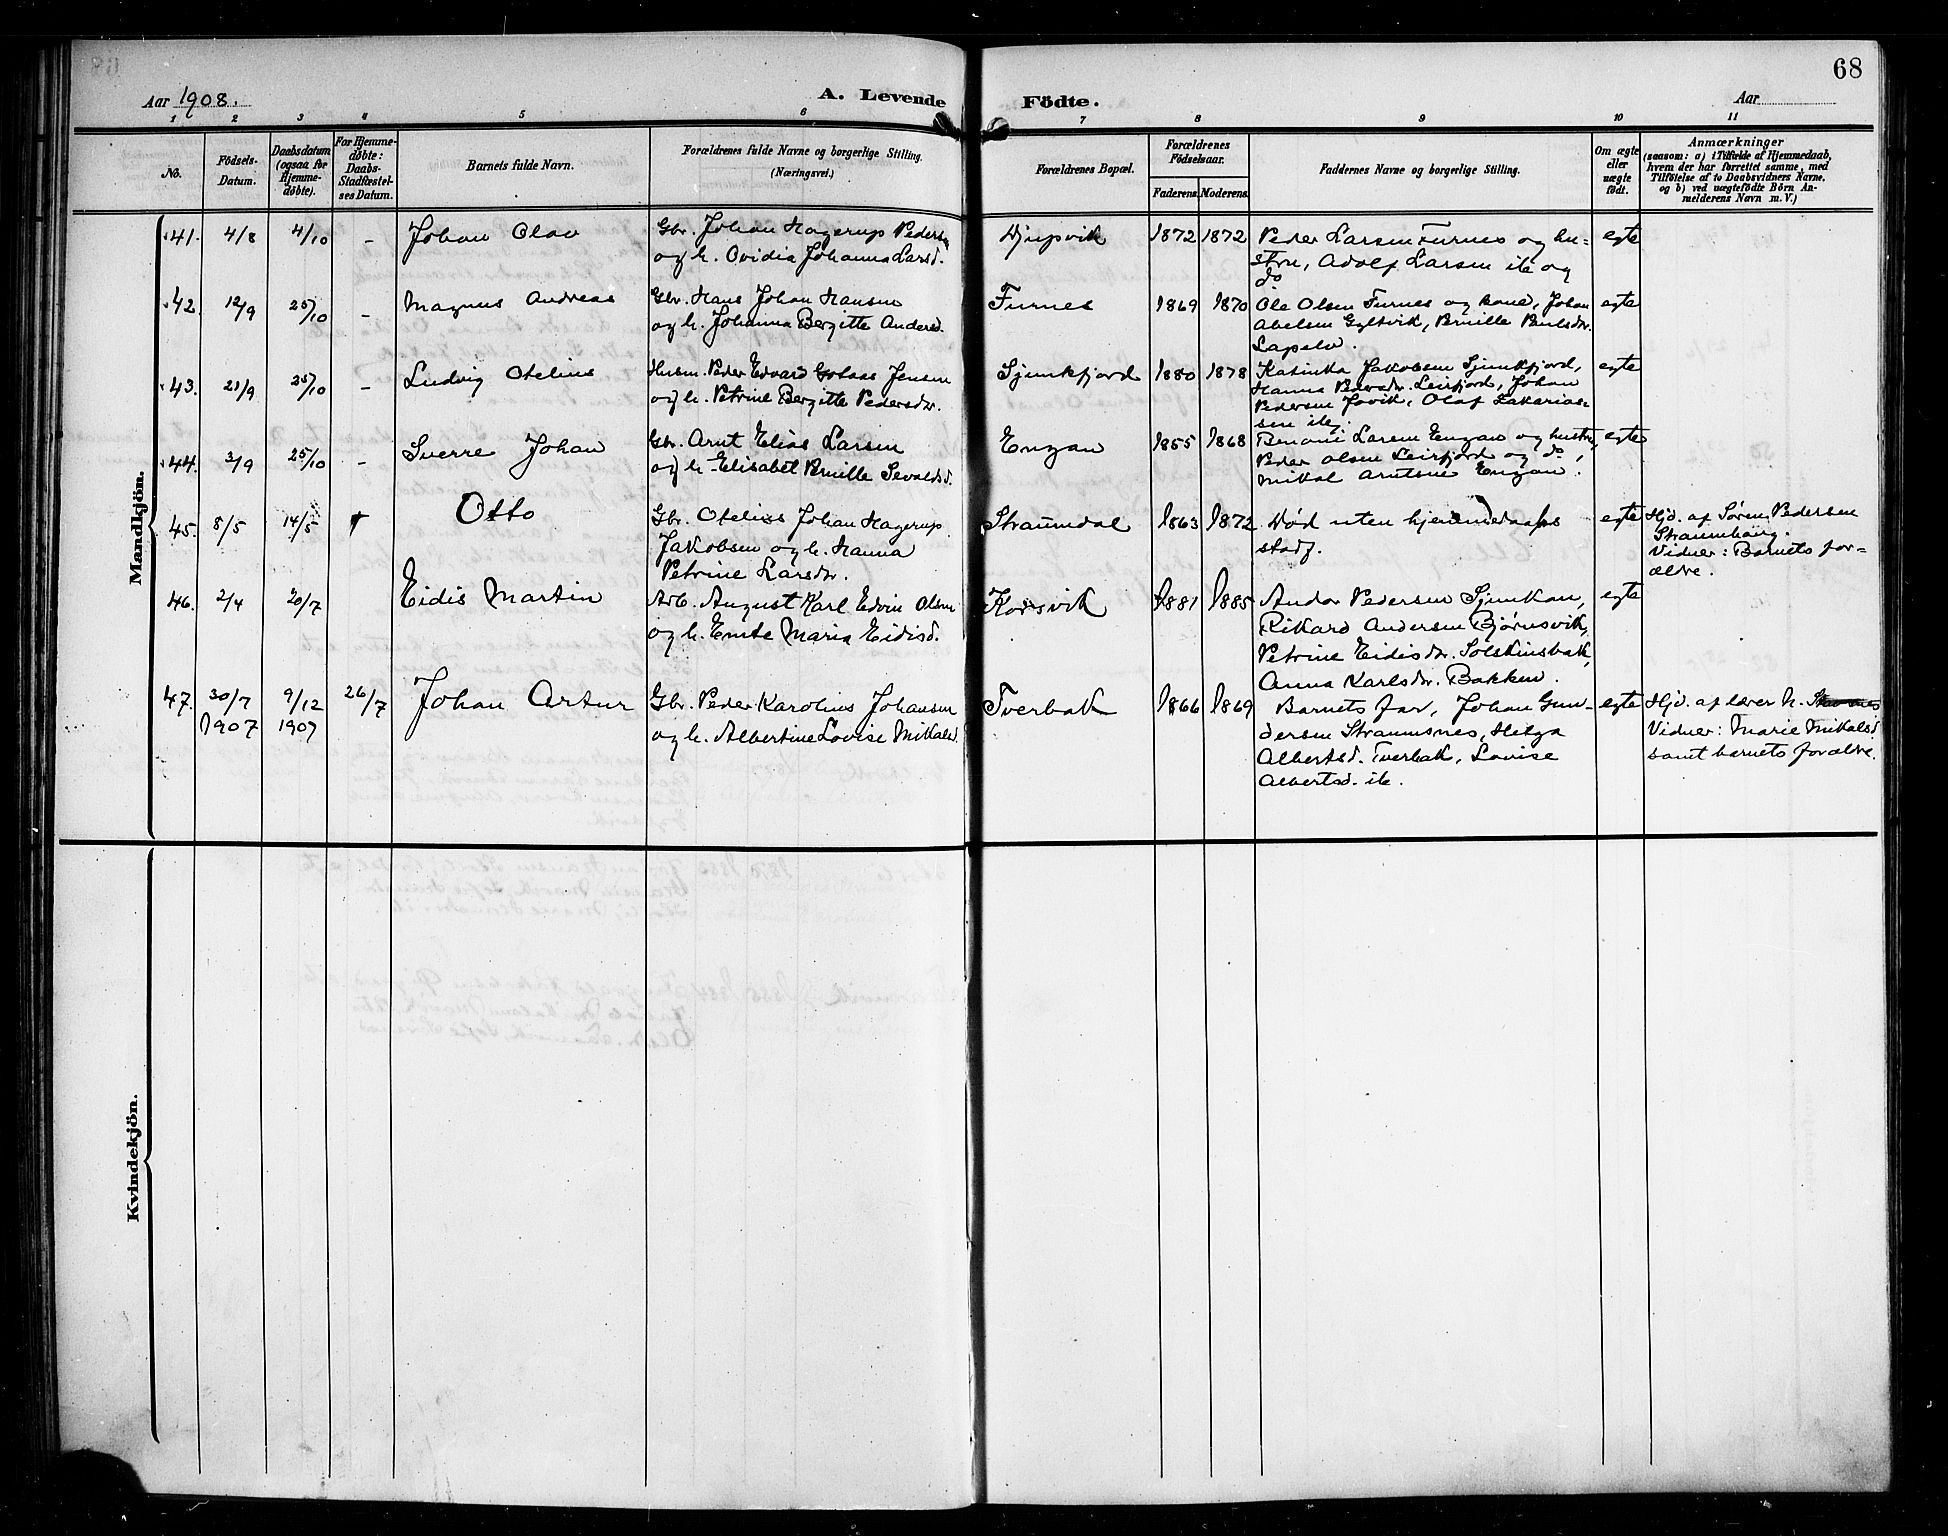 68
Aar 1908.
A. Levende Födte.
Aar
1 2 3 4 5 6 7 8 9 10 11
No.
Födsels-Datum.
Daabsdatum (ogsaa for Hjemme-döbte).
For Hjemme-döbte: Daabs-Stadfæstel-ses Datum.
Barnets fulde Navn.
Forældrenes fulde Navne og borgerlige Stilling.
(Næringsvei.)
Forældrenes Bopæl.
Forældrenes Födselsaar.
Faderens. Moderens.
Faddernes Navne og borgerlige Stilling.
Om ægte eller uægte födt.
Anmærkninger
(saasom: a) i Tilfælde af Hjemmedaab,
hvem der har forrettet samme, med
Tilföielse af to Daabsvidners Navne,
og b) ved uægtefödte Börn An-
melderens Navn m. V.)
Mandkjön.
41. 4/8 4/10 – Johan Olav
Gbr. Johan Hagerup Peders
og h. Ovidia Johanna Larsd.
Djupvik 1872 1872
Peder Larsen Furnes og hu=
stru, Adolf Larsen ib og
do
egte
42. 12/9 25/10 – Magnus Andreas
Gbr. Hans Johan Hansen
og h. Johanna Bergitte Andersd.
Furnes 1869 1870
Ole Olsen Furnes og kone, Johan
Abelsen Gyltvik, Pernille Paulsdr.
Lapelv.
egte
43. 21/9 25/10 – Ludvig Otelius
Husm. Peder Edvard Jensen
og h. Petrine Bergitte Pedersdr.
Sjunkfjord 1880 1878
Katinka Jakobsen Sjunkfjord,
Hanna Pedersdr. Leirfjord, Johan
Pedersen Jovik, Olaf Zakarias=
sen ib.
egte
44. 3/9 25/10 – Sverre Johan
Gbr. Arnt Elias Larsen
og h. Elisabet Pernille Sevaldsd.
Engan 1855 1868
Benoni Larsen Engan og hustru,
Peder Olsen Leirfjord og do,
Mikal Arntsen Engan.
egte
45. 8/5 14/5 † Otto
Gbr. Otelius Johan Hagerup
Jakobsen og h. Hanna
Petrine Larsdr.
Straumdal 1863 1872
Død uten hjemmedaabs
stadf.
egte
Hjd. af Søren Pedersen
Straumhaug.
Vidner: Barnets for=
ældre.
46. 2/4 20/7 Eidis Martin
Arb. August Karl Edvin Olsen
og h. Emte Maria Eidisd.
Korsvik 1881 1885
Andor Pedersen Sjunkan,
Rikard Andersen Bjørnsvik,
Petrine Eidisdr. Solskinsbak,
Anna Karlsdr. Bakken.
egte
47. 30/7 1907 9/12 1907 26/7 Johan Artur
Gbr. Peder Karolius Johansen
og h. Albertine Lovise Mikalsd.
Tverbak 1866 1869
Barnets far, Johan Gun-
dersen Straumsnes, Helga
Albertsd. Tverbak, Lovise
Albertsd. ib.
egte
Hjd. af lærer h.
Vidner: Marie Mikalsd.
samt barnets forældre.
Kvindekjön.